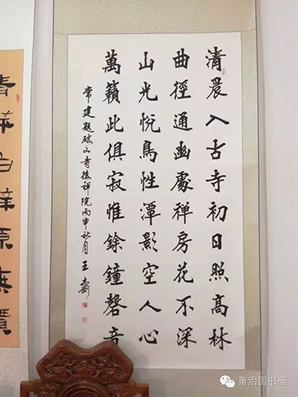 清晨入古寺初日照高林
曲徑通幽處禪房花木深
山光悅鳥性潭影空人心
萬籟此俱寂惟餘鐘磬音
常建題破山寺後禪院丙申秋月王
董治国书画